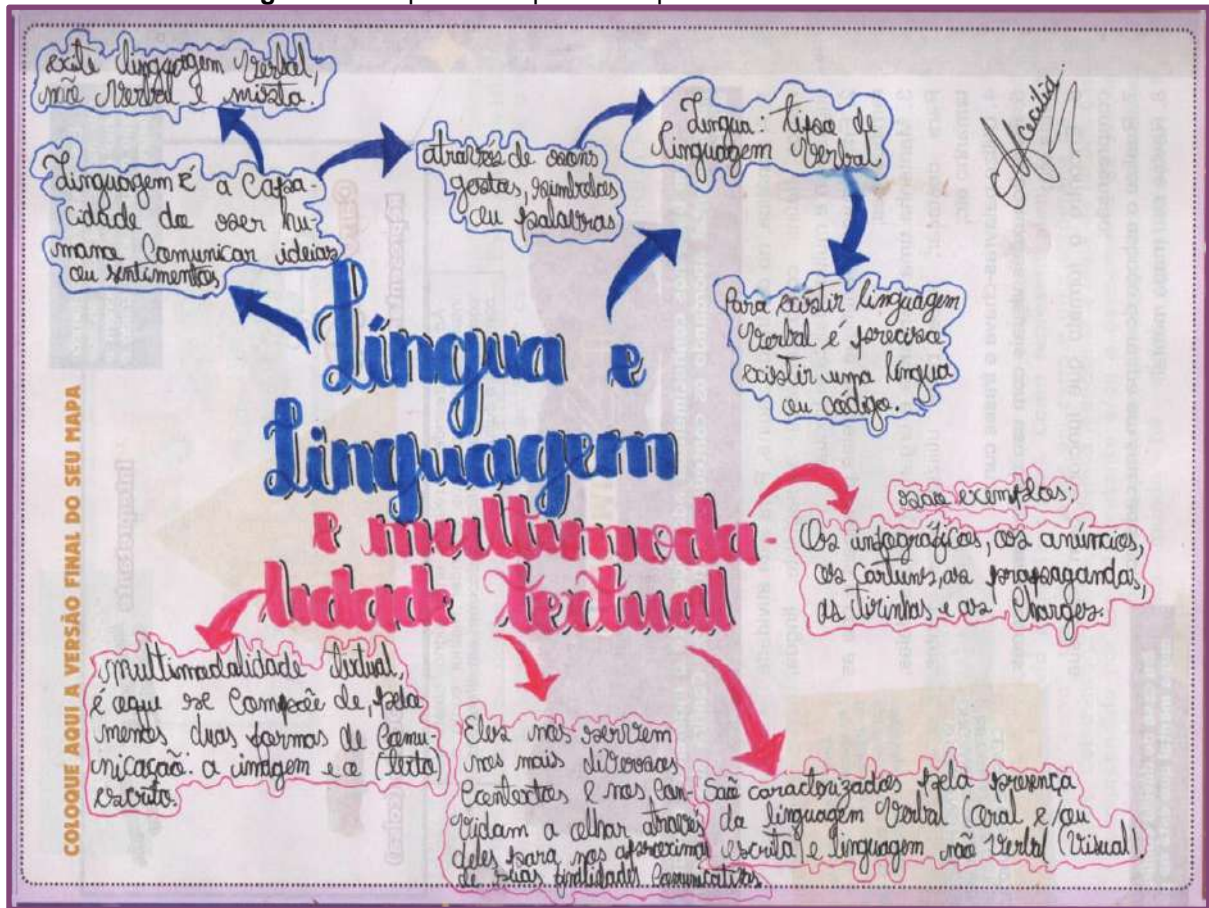 exite linguagem verbal,
não verbal e mista.
Linguagem É a Capa-
cidade do ser hu-
mano Comunicar ideias
ou sentimentos
através de sons
gestos, símbolos
ou palavras
Língua: tipo de
linguagem Verbal
Para existir linguagem
Verbal é preciso
existir uma língua
ou código.
Língua e
Linguagem
e multimoda-
lidade textual
são exemplos:
Os infográficos, os anúncios,
os Cartuns, as propagandas,
as tirinhas e as Charges.
multimodalidade textual,
é aqui se Compoẽ de, pelo
menos duas formas de Comu-
nicação: a imagem e o (texto)
escrito.
Eles nos servem
nos mais diversos
Contextos e nos Con-
vidam a olhar através
deles para nos aproximar
de suas finalidades Comunicativas
São caracterizados pela presença
da linguagem Verbal (oral e/ou
escrita) e linguagem não Verbl (Visual).
COLOQUE AQUI A VERSÃO FINAL DO SEU MAPA